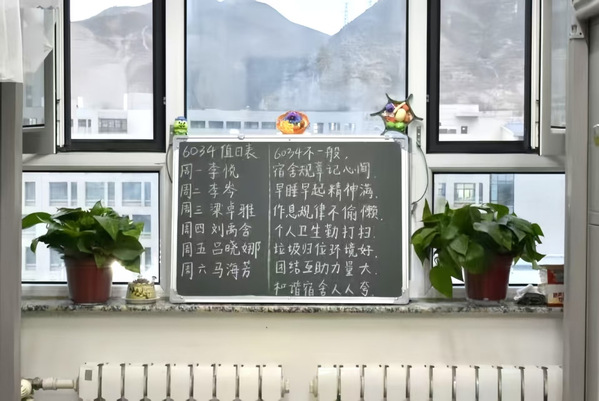 6034 值日表
周一 李悦
周二 李岑
周三 梁卓雅
周四 刘禹含
周五 吕晓娜
周六 马海芳
6034不一般,
宿舍规章记心间,
早睡早起精神满,
作息规律不偷懒,
个人卫生勤打扫,
垃圾归位环境好,
团结互助力量大,
和谐宿舍人人夸,